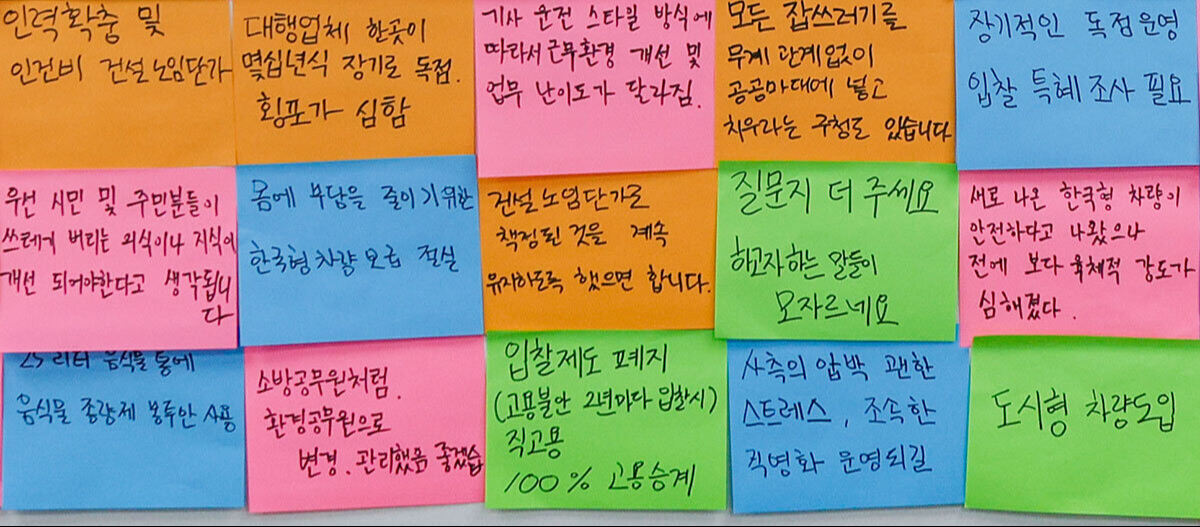 인력확충 및
인건비 건설노임단가
대행업체 한곳이
몇십년식 장기로 독점.
횡포가 심함
기사 운전 스타일 방식에
따라서 근무환경 개선 및
업무 난이도가 달라짐.
모든 잡쓰러기를
무게 관계없이
공공마대에 넣고
치우라는 구청도 있습니다
장기적인 독점운영
입찰 특혜 조사 필요
우선 시민 및 주민분들이
쓰레게 버리는 의식이나 지식이
개선 되어야한다고 생각됩니
다
몸에 부담을 줄이기 위한
한국형차량 보급 절실
건설노임단가로
책정된 것을 계속
유지하도록 했으면 합니다.
질문지 더 주세요
하고자하는 말들이
모자르네요
새로 나온 한국형 차량이
안전하다고 나왔으나
전에 보다 육체적 강도가
심해졌다.
25리터 음식물통에
음식물 종량제 봉투안 사용
소방공무원처럼.
환경공무원으로
변경. 관리했음 좋겠습
입찰제도 폐지
(고용불안 2년마다 입찰시)
직고용
100% 고용승계
사측의 압박 괜한
스트레스, 조속한
직영화 운영되길
도시형 차량도입